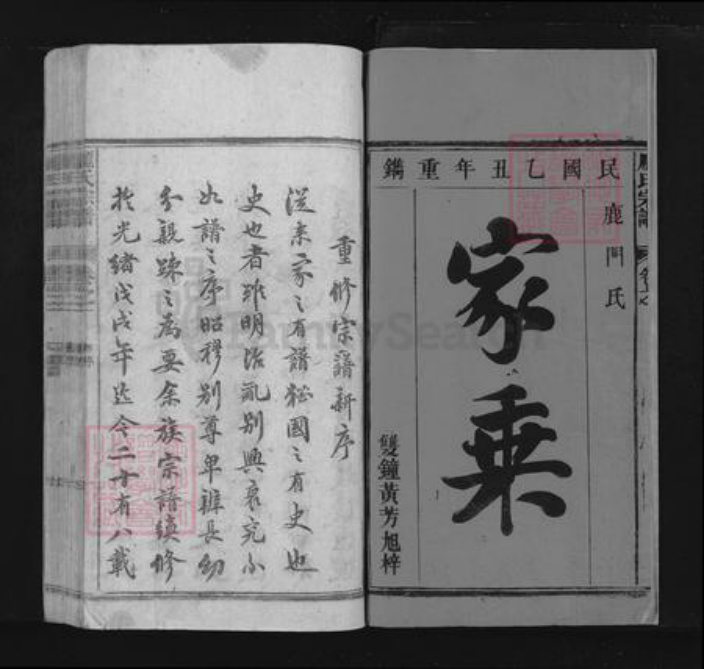 民國乙丑年重鐫
鹿門氏
家乘
雙鐘黃芳旭梓
重修宗譜新序
從來家之有譜猶國之有史也
史也者雖明治亂別興衰究不
如譜之序昭穆別尊卑辨長幼
分親疎之為要余族宗譜續修
於光緒戊戌年迄今二十有八載
FamilySearch